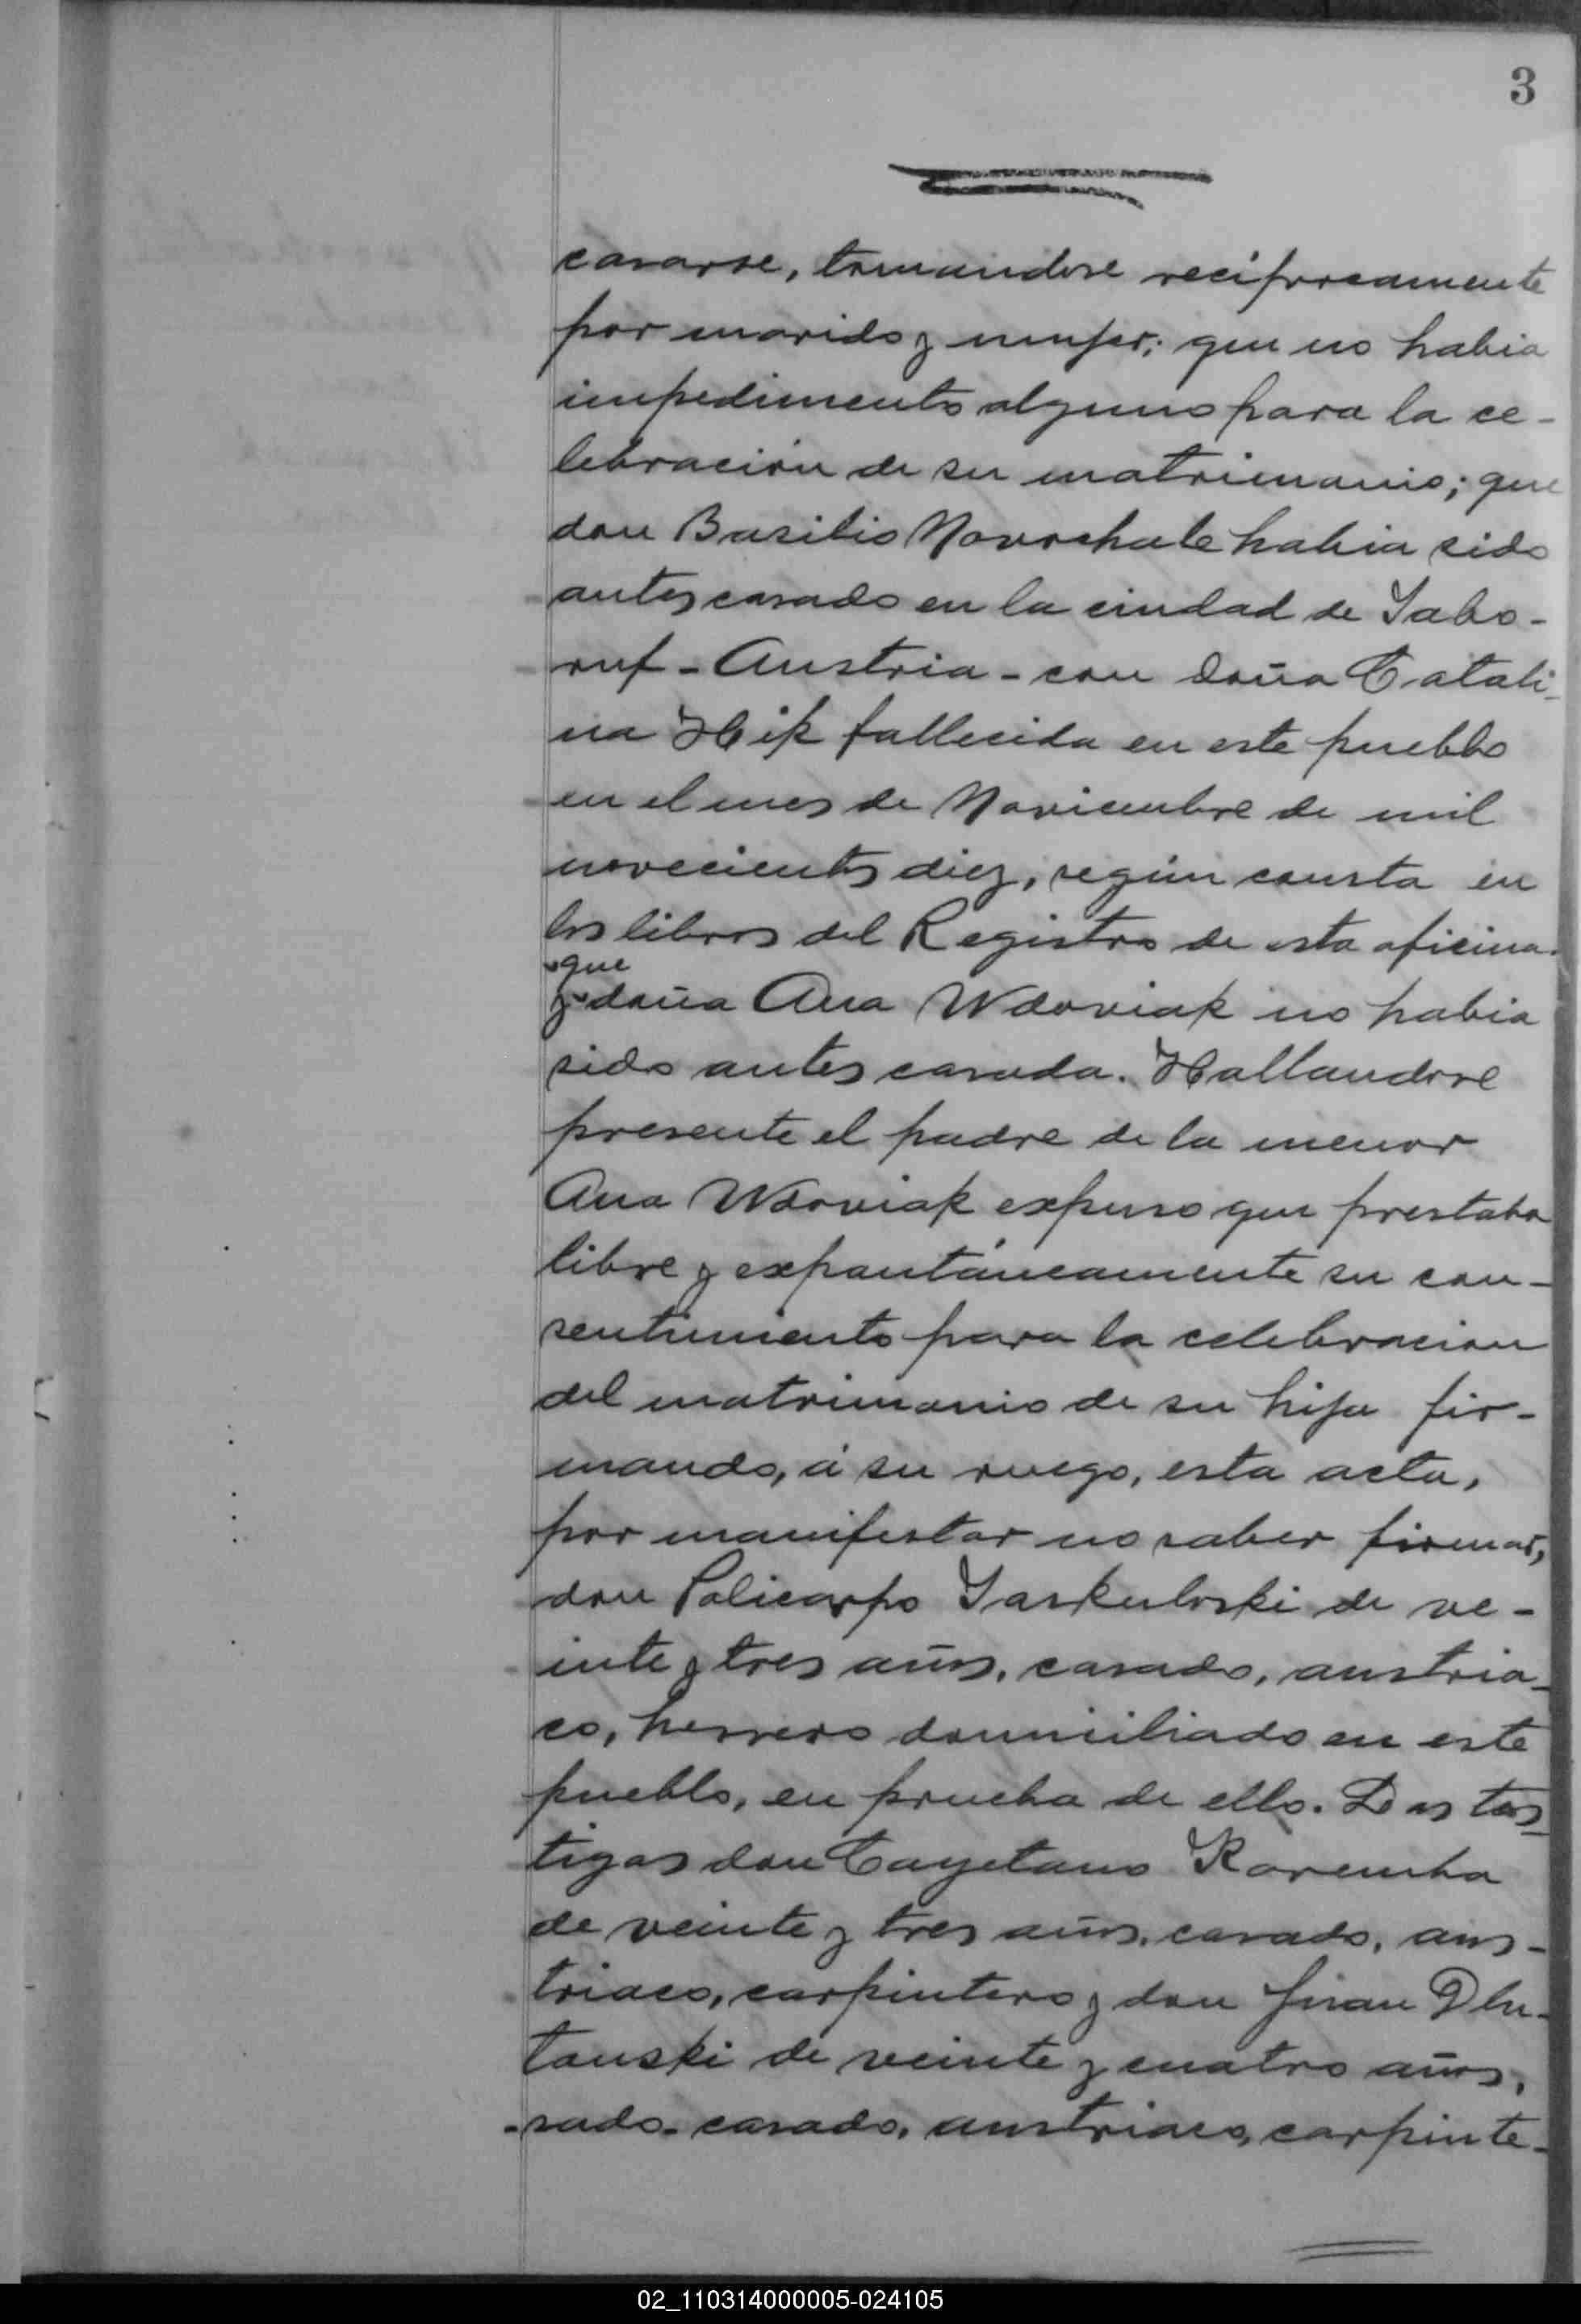 3
casarse, tomandose recíprocamente
por marido y mujer; que no habia
impedimento alguno para la ce-
lebración de su matrimonio; que
don Basilio Novochale habia sido
antes casado en la ciudad de Yabo-
ruf - Austria - con doña Catali-
na Hik fallecida en este pueblo
en el mes de Noviembre de mil
novecientos diez, según consta en
los libros del Registro de esta oficina.
que
y doña Ana Wdoviak no habia
sido antes casada. Hallandose
presente el padre de la menor
Ana Wdoviak expuso que prestaba
libre y expontáneamente su con-
sentimiento para la celebracion
del matrimonio de su hija fir-
mando, á su ruego, esta acta,
por manifestar no saber firmar,
don Policarpo Yaskuloski de ve-
inte y tres años, casado, austria-
co, herrero domiciliado en este
pueblo, en prueba de ello. Los tes-
tigos don Cayetano Karemba
de veinte y tres años, casado, aus-
triaco, carpintero y don Juan Dlu-
touski de veinte y cuatro años,
-sado- casado, austriaco, carpinte-
02_110314000005-024105